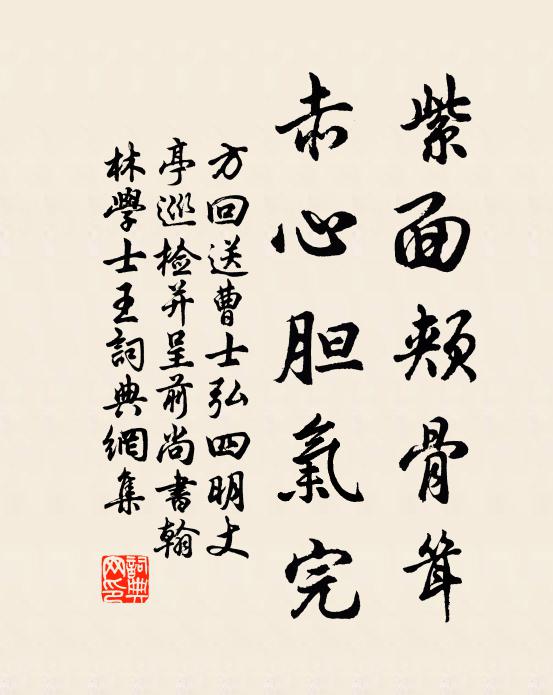 紫面頰骨耸
赤心胆氣完
方回送曹士弘四明丈
亭巡检并呈前尚書翰
林學士王詞典網集
詞典
网印